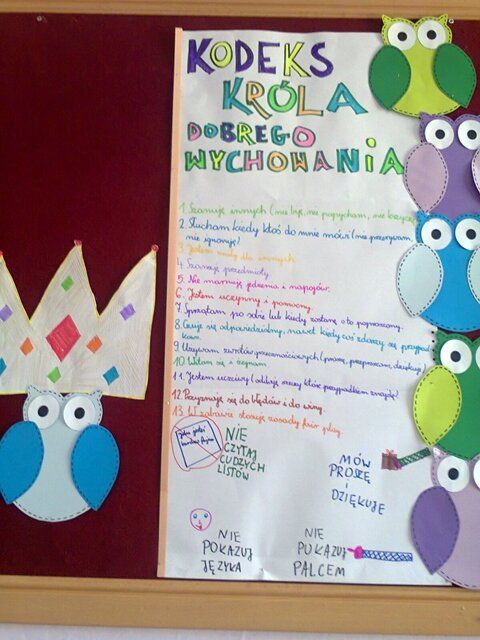 KODEKS
KRÓLA
DOBREGO
WYCHOWANIA
1. Szanuję innych (nie biję, nie popycham, nie krzyczę)
2. Słucham kiedy ktoś do mnie mówi (nie przerywam,
nie ignoruję)
3. Jestem miły dla innych
4. Szanuję przedmioty
5. Nie marnuję jedzenia i napojów.
6. Jestem uczynny i pomocny
7. Sprzątam po sobie lub kiedy zostanę o to poproszony.
8. Czuję się odpowiedzialny, nawet kiedy coś zdarzy się
9. Używam zwrotów grzecznościowych (proszę, przepraszam, dziękuję)
10. Witam się i żegnam
11. Jestem uczciwy (oddaję rzeczy które przypadkiem znajdę)
12. Przyznaję się do błędów i do winy
13. W zabawie stosuję zasady fair play.
NIE
CZYTAJ
CUDZYCH
LISTÓW
MÓW
PROSZĘ
i
DZIĘKUJĘ
NIE
POKAZUJ
JĘZYKA
NIE
POKAZUJ
PALCEM